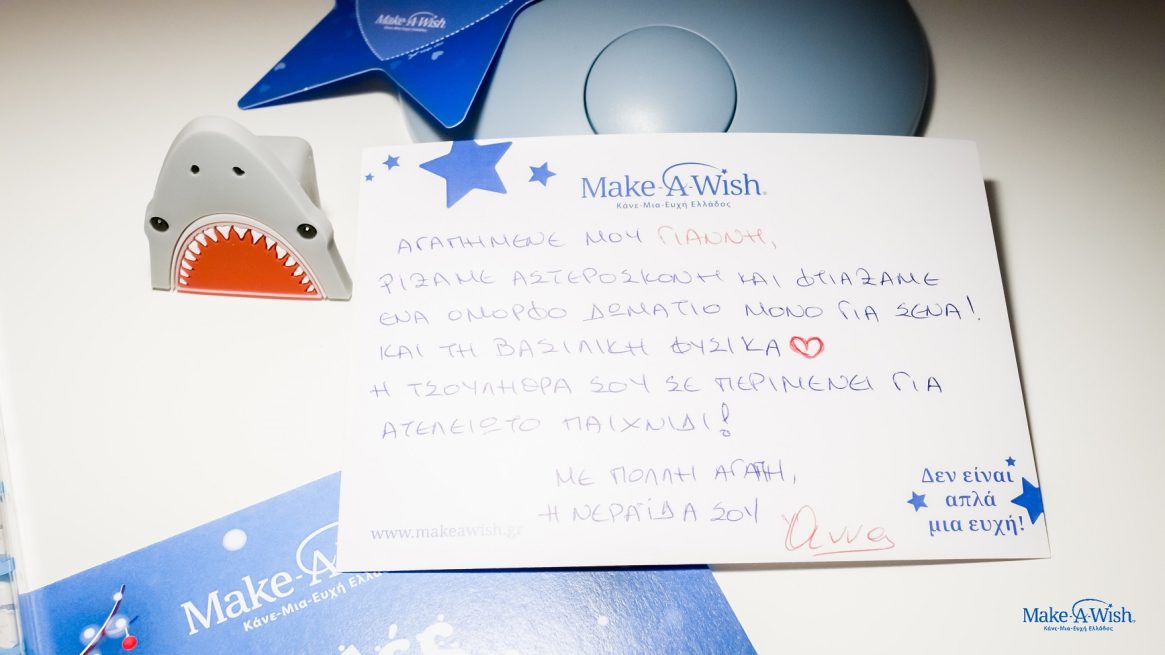 Make-A-Wish
Κάνε-Μια-Ευχή Ελλάδος
Make-A-Wish®
Κάνε-Μια-Ευχή Ελλάδος
ΑΓΑΠΗΜΕΝΕ ΜΟΥ ΓΙΑΝΝΗ,
ΡΙΞΑΜΕ ΑΣΤΕΡΟΣΚΟΝΗ ΚΑΙ ΦΤΙΑΞΑΜΕ
ΕΝΑ ΟΜΟΡΦΟ ΔΩΜΑΤΙΟ ΜΟΝΟ ΓΙΑ ΣΕΝΑ!
ΚΑΙ ΤΗ ΒΑΣΙΛΙΚΗ ΦΥΣΙΚΑ
Η ΤΣΟΥΛΗΘΡΑ ΣΟΥ ΣΕ ΠΕΡΙΜΕΝΕΙ ΓΙΑ
ΑΤΕΛΕΙΩΤΟ ΠΑΙΧΝΙΔΙ!
ΜΕ ΠΟΛΛΗ ΑΓΑΠΗ,
Η ΝΕΡΑΪΔΑ ΣΟΥ
Άννα
www.makeawish.gr
Δεν είναι
απλά
μια ευχή!
Make-A-Wish
Κάνε-Μια-Ευχή Ελλάδος
Make-A-Wish®
Κάνε-Μια-Ευχή Ελλάδος